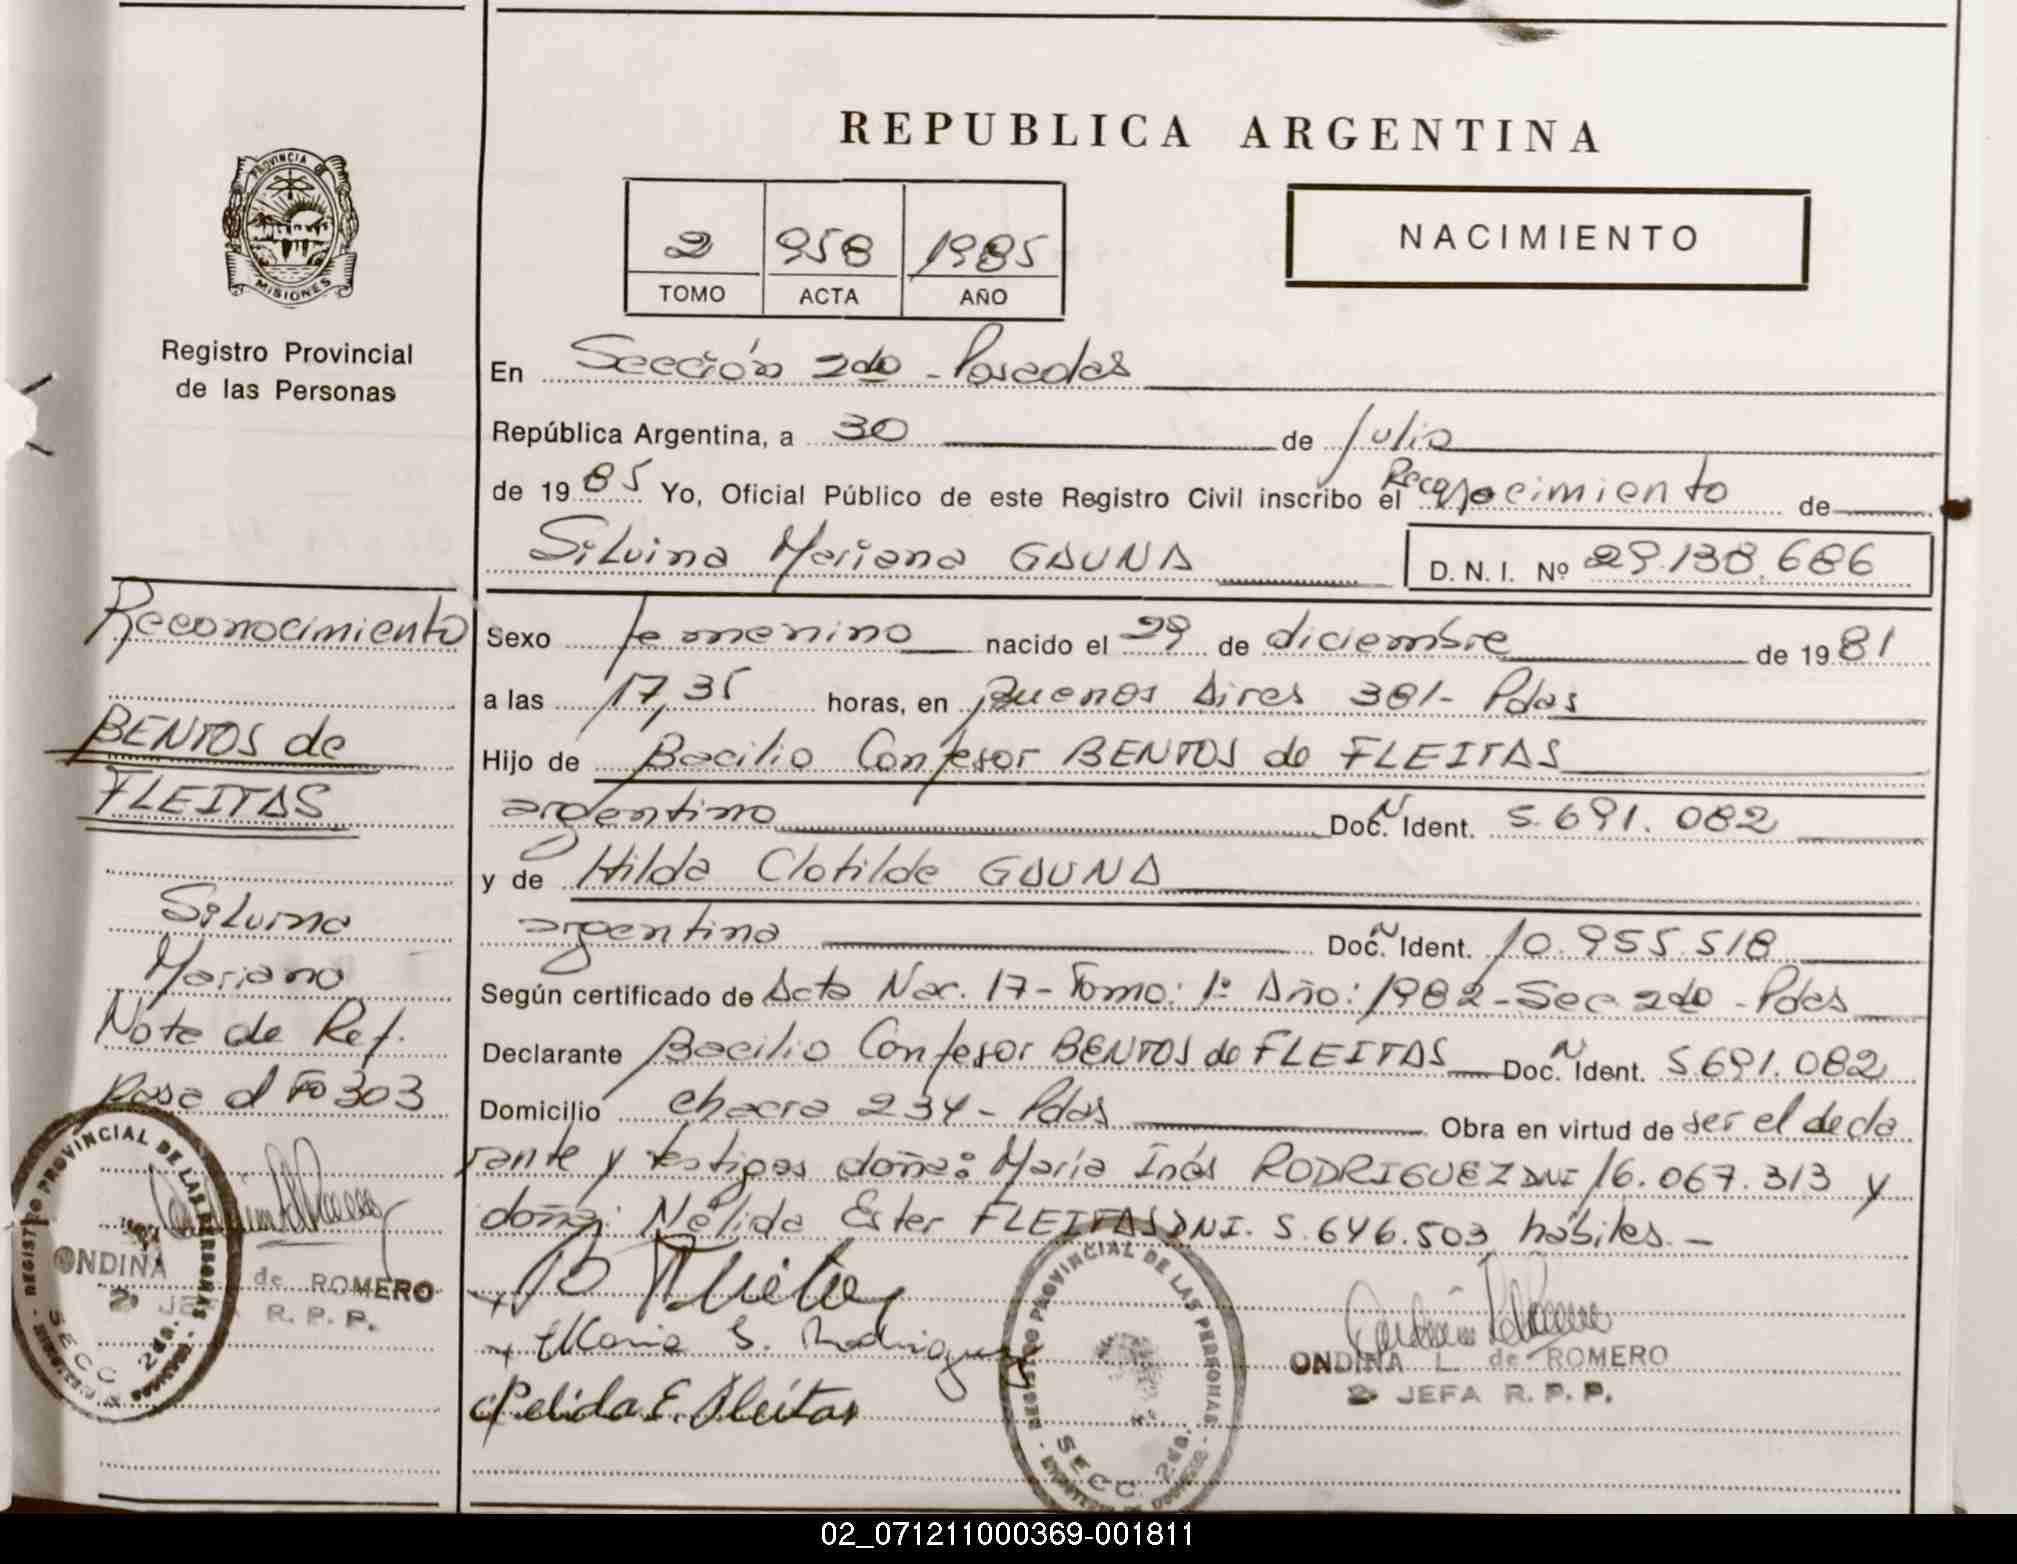 REPUBLICA ARGENTINA
PROVINCIA
MISIONES
Registro Provincial
de las Personas
2 958 1985
TOMO ACTA AÑO
NACIMIENTO
En Sección 2da - Posadas
República Argentina, a 30 de julio
de 1985 Yo, Oficial Público de este Registro Civil inscribo el Reconocimiento de
Silvina Mariana GAUNA D. N. I. Nº 29.138.686
Sexo femenino nacido el 29 de diciembre de 1981
a las 17,35 horas, en Buenos Aires 381- Pdas
Hijo de Bacilio Confesor BENTOS de FLEITAS
argentino Doc. N Ident. 5.691.082
y de Hilda Clotilde GAUNA
argentina Doc. N Ident. 10.955.518
Según certificado de Acta Nac. 17 - Tomo: 1º Año: 1982 - Sec 2da - Pdas
Declarante Bacilio Confesor BENTOS de FLEITAS Doc. N Ident. 5.691.082
Domicilio chacra 234 - Pdas Obra en virtud de ser el decla
rante y testigos doña: María Inés RODRIGUEZ DNI 16.067.313 y
doña: Nélida Ester FLEITAS DNI. 5.646.503 hábiles. -
Maria I. Rodriguez
Nelida E. Fleitas
REGISTRO PROVINCIAL DE LAS PERSONAS
SECC. 2da.
ONDINA L. de ROMERO
2 JEFA R. P. P.
Reconocimiento
BENTOS de
FLEITAS
Silvina
Mariana
Nota de Ref.
Pasa al Fo 303
REGISTRO PROVINCIAL DE LAS PERSONAS
SECC 2da.
ONDINA de ROMERO
2 JEFA R. P. P.
02_071211000369-001811